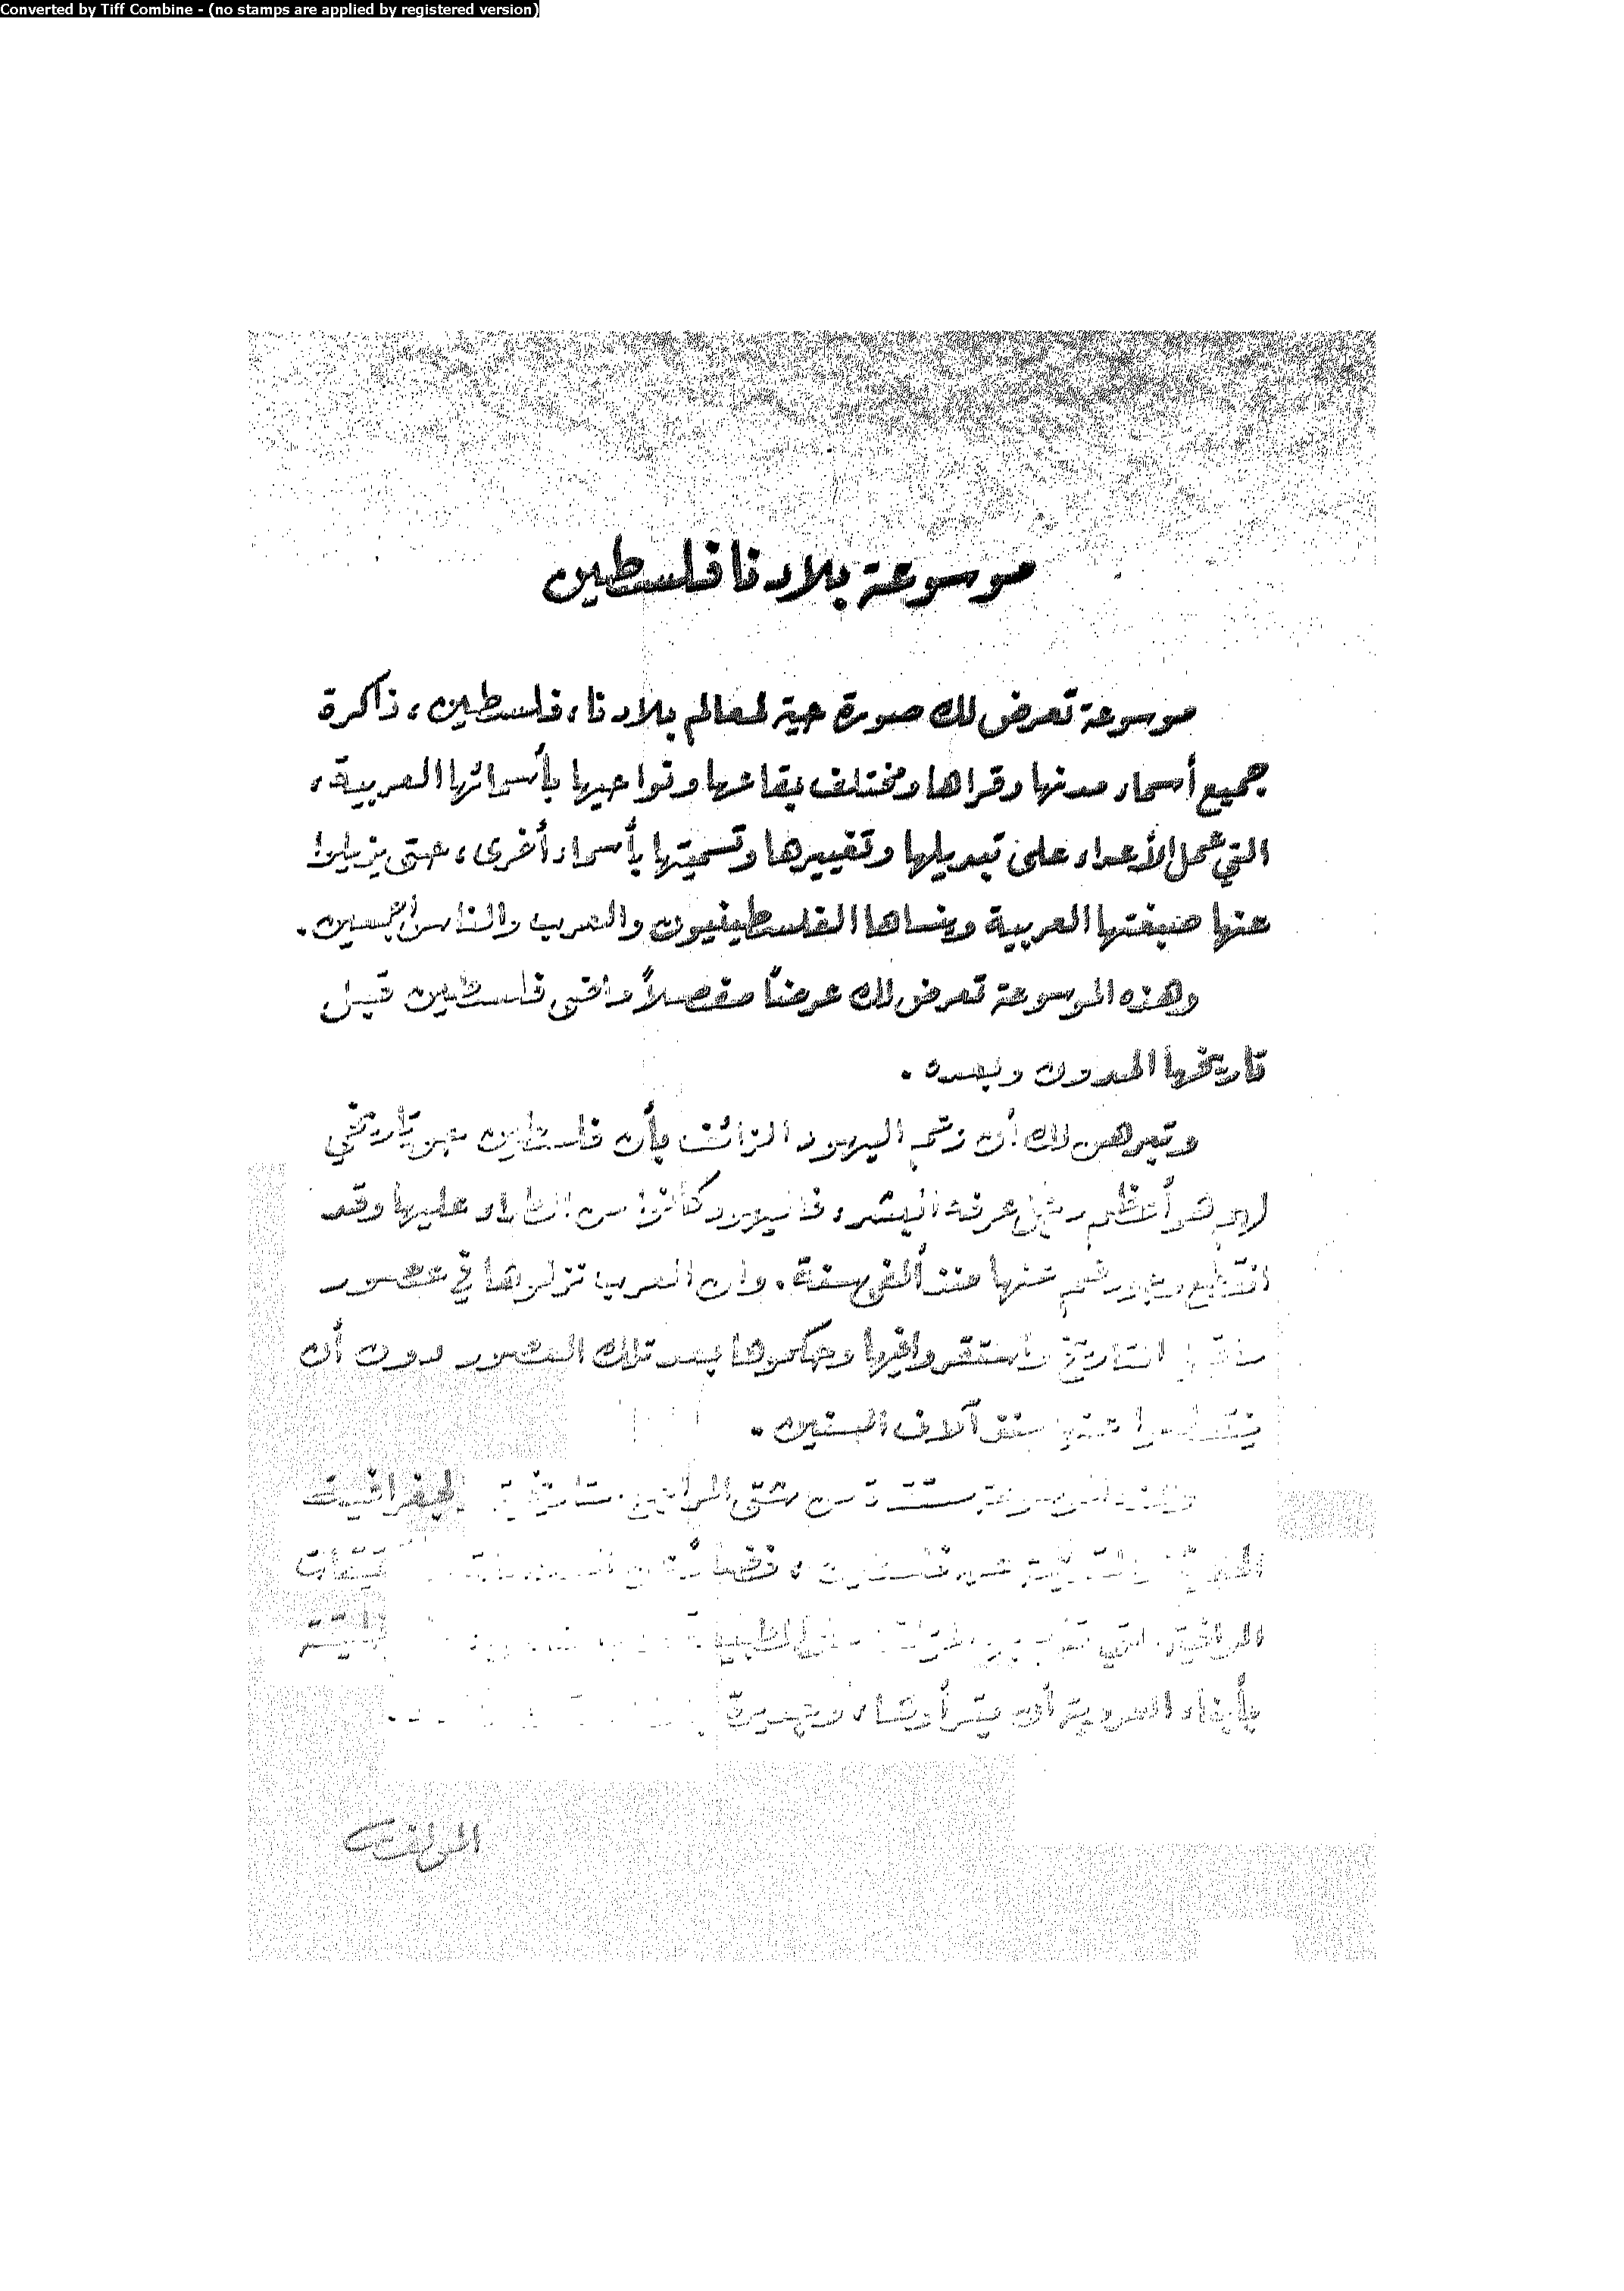 Converted by Tiff Combine - (no stamps are applied by registered version)
موسوعة بلادنا فلسطين
موسوعة تعرض لك صورة حية لمعالم بلادنا، فلسطين، ذاكرة
جميع أسماء مدنها وقراها ومختلف بقاعها ونواحيها بأسمائها العربية،
التي عمل الأعداء على تبديلها وتغييرها وتسميتها بأسماء أخرى، حتى يزيلوا
عنها صبغتها العربية وينساها الفلسطينيون والعرب والناس أجمعين.
وهذه الموسوعة تعرض لك عرضاً مفصلاً ماضي فلسطين قبل
تاريخها المدون وبعده.
وتبرهن لك أن زعم اليهود الزائف بأن فلسطين حق تاريخي
لهم هو أعظم عرفه البشر، فاليهود كانوا من الطراء عليها وقد
انقطع وجودهم عنها منذ ألفي سنة. وان العرب نزلوها في عصور
ما قبل التاريخ واستقروا فيها وحكموها بعد تلك العصور دون أن
ينقطعوا عنها منذ آلاف السنين.
وهذه الموسوعة من شتى المراجع الجغرافية
فلسطين،
التي
العروبة أن يقرأوها، وجديرة
المؤلف